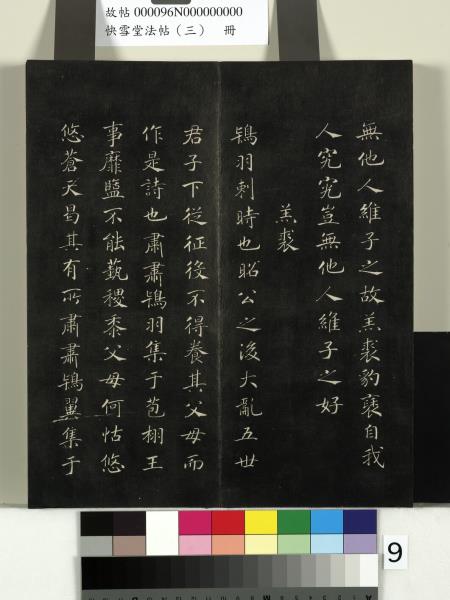 故帖 000096N000000000
快雪堂法帖（三） 冊
無他人維子之故羔裘豹褎自我
人究究豈無他人維子之好
羔裘
鴇羽刺時也昭公之後大亂五世
君子下從征役不得養其父母而
作是詩也肅肅鴇羽集于苞栩王
事靡盬不能蓺稷黍父母何怙悠
悠蒼天曷其有所肅肅鴇翼集于
9